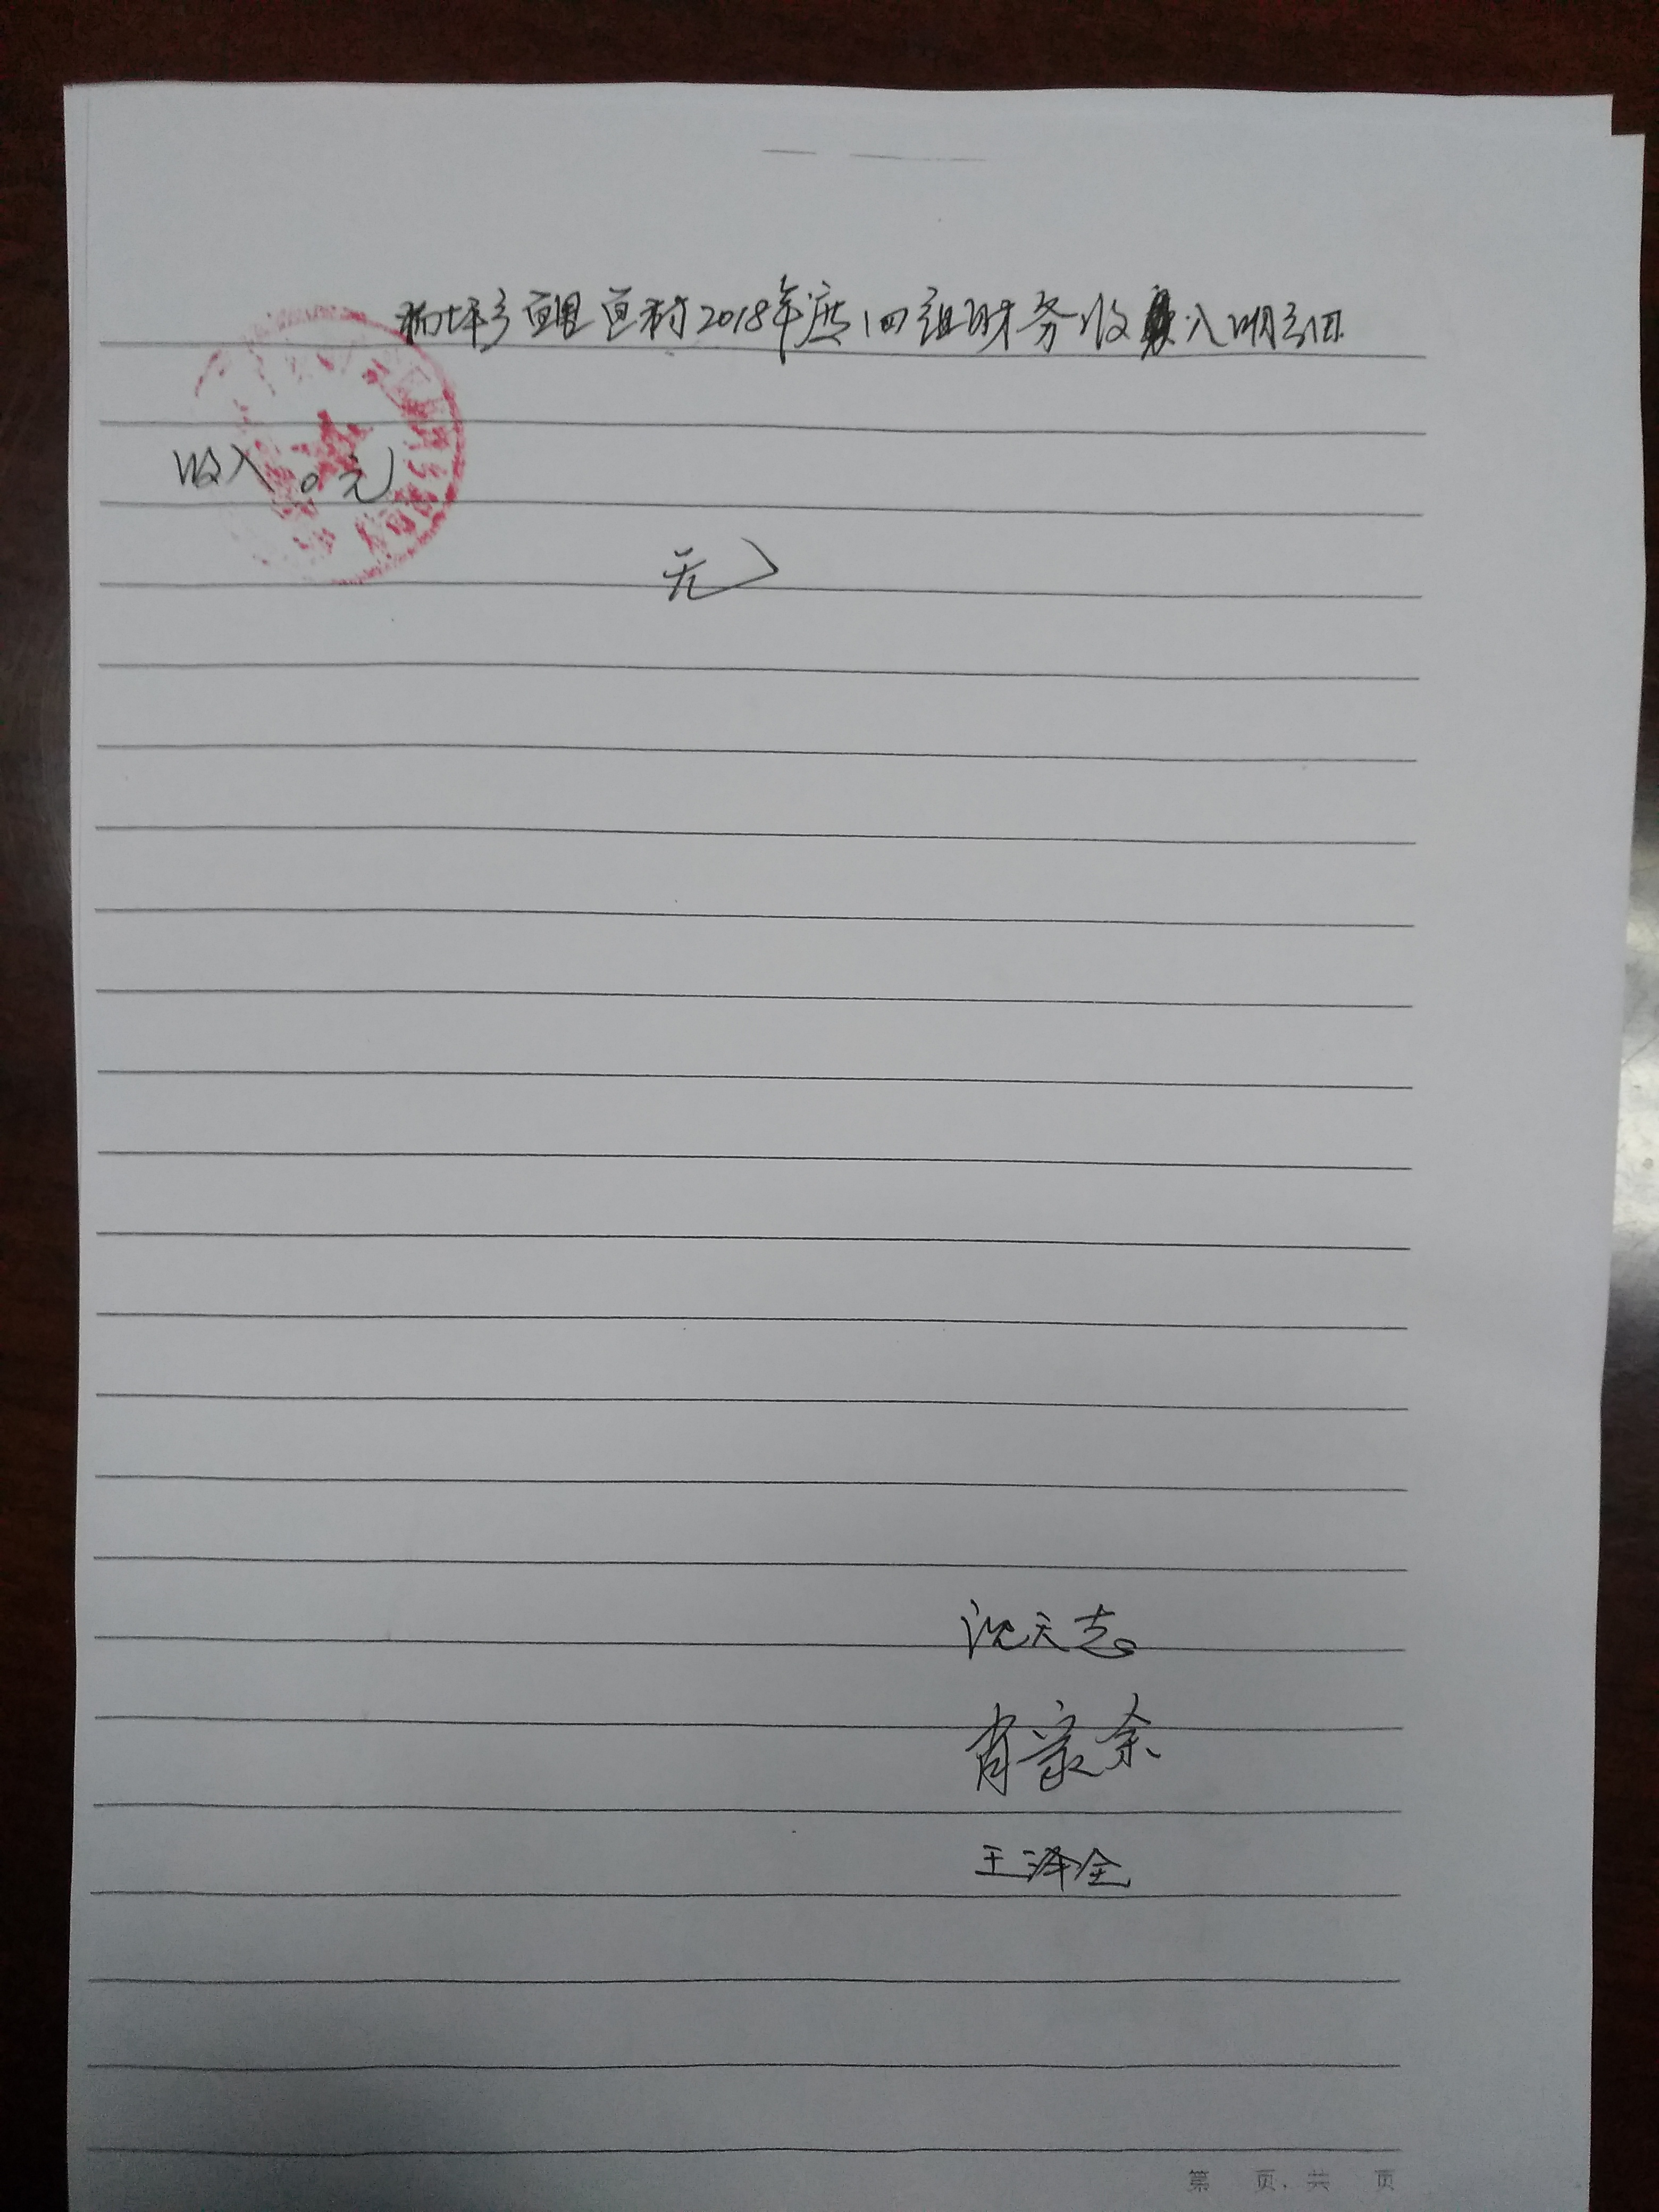 坪乡画里画村2018年度四组财务收入明细
收入0元
无
沈天志
肖家余
王泽全
第 页,共 页